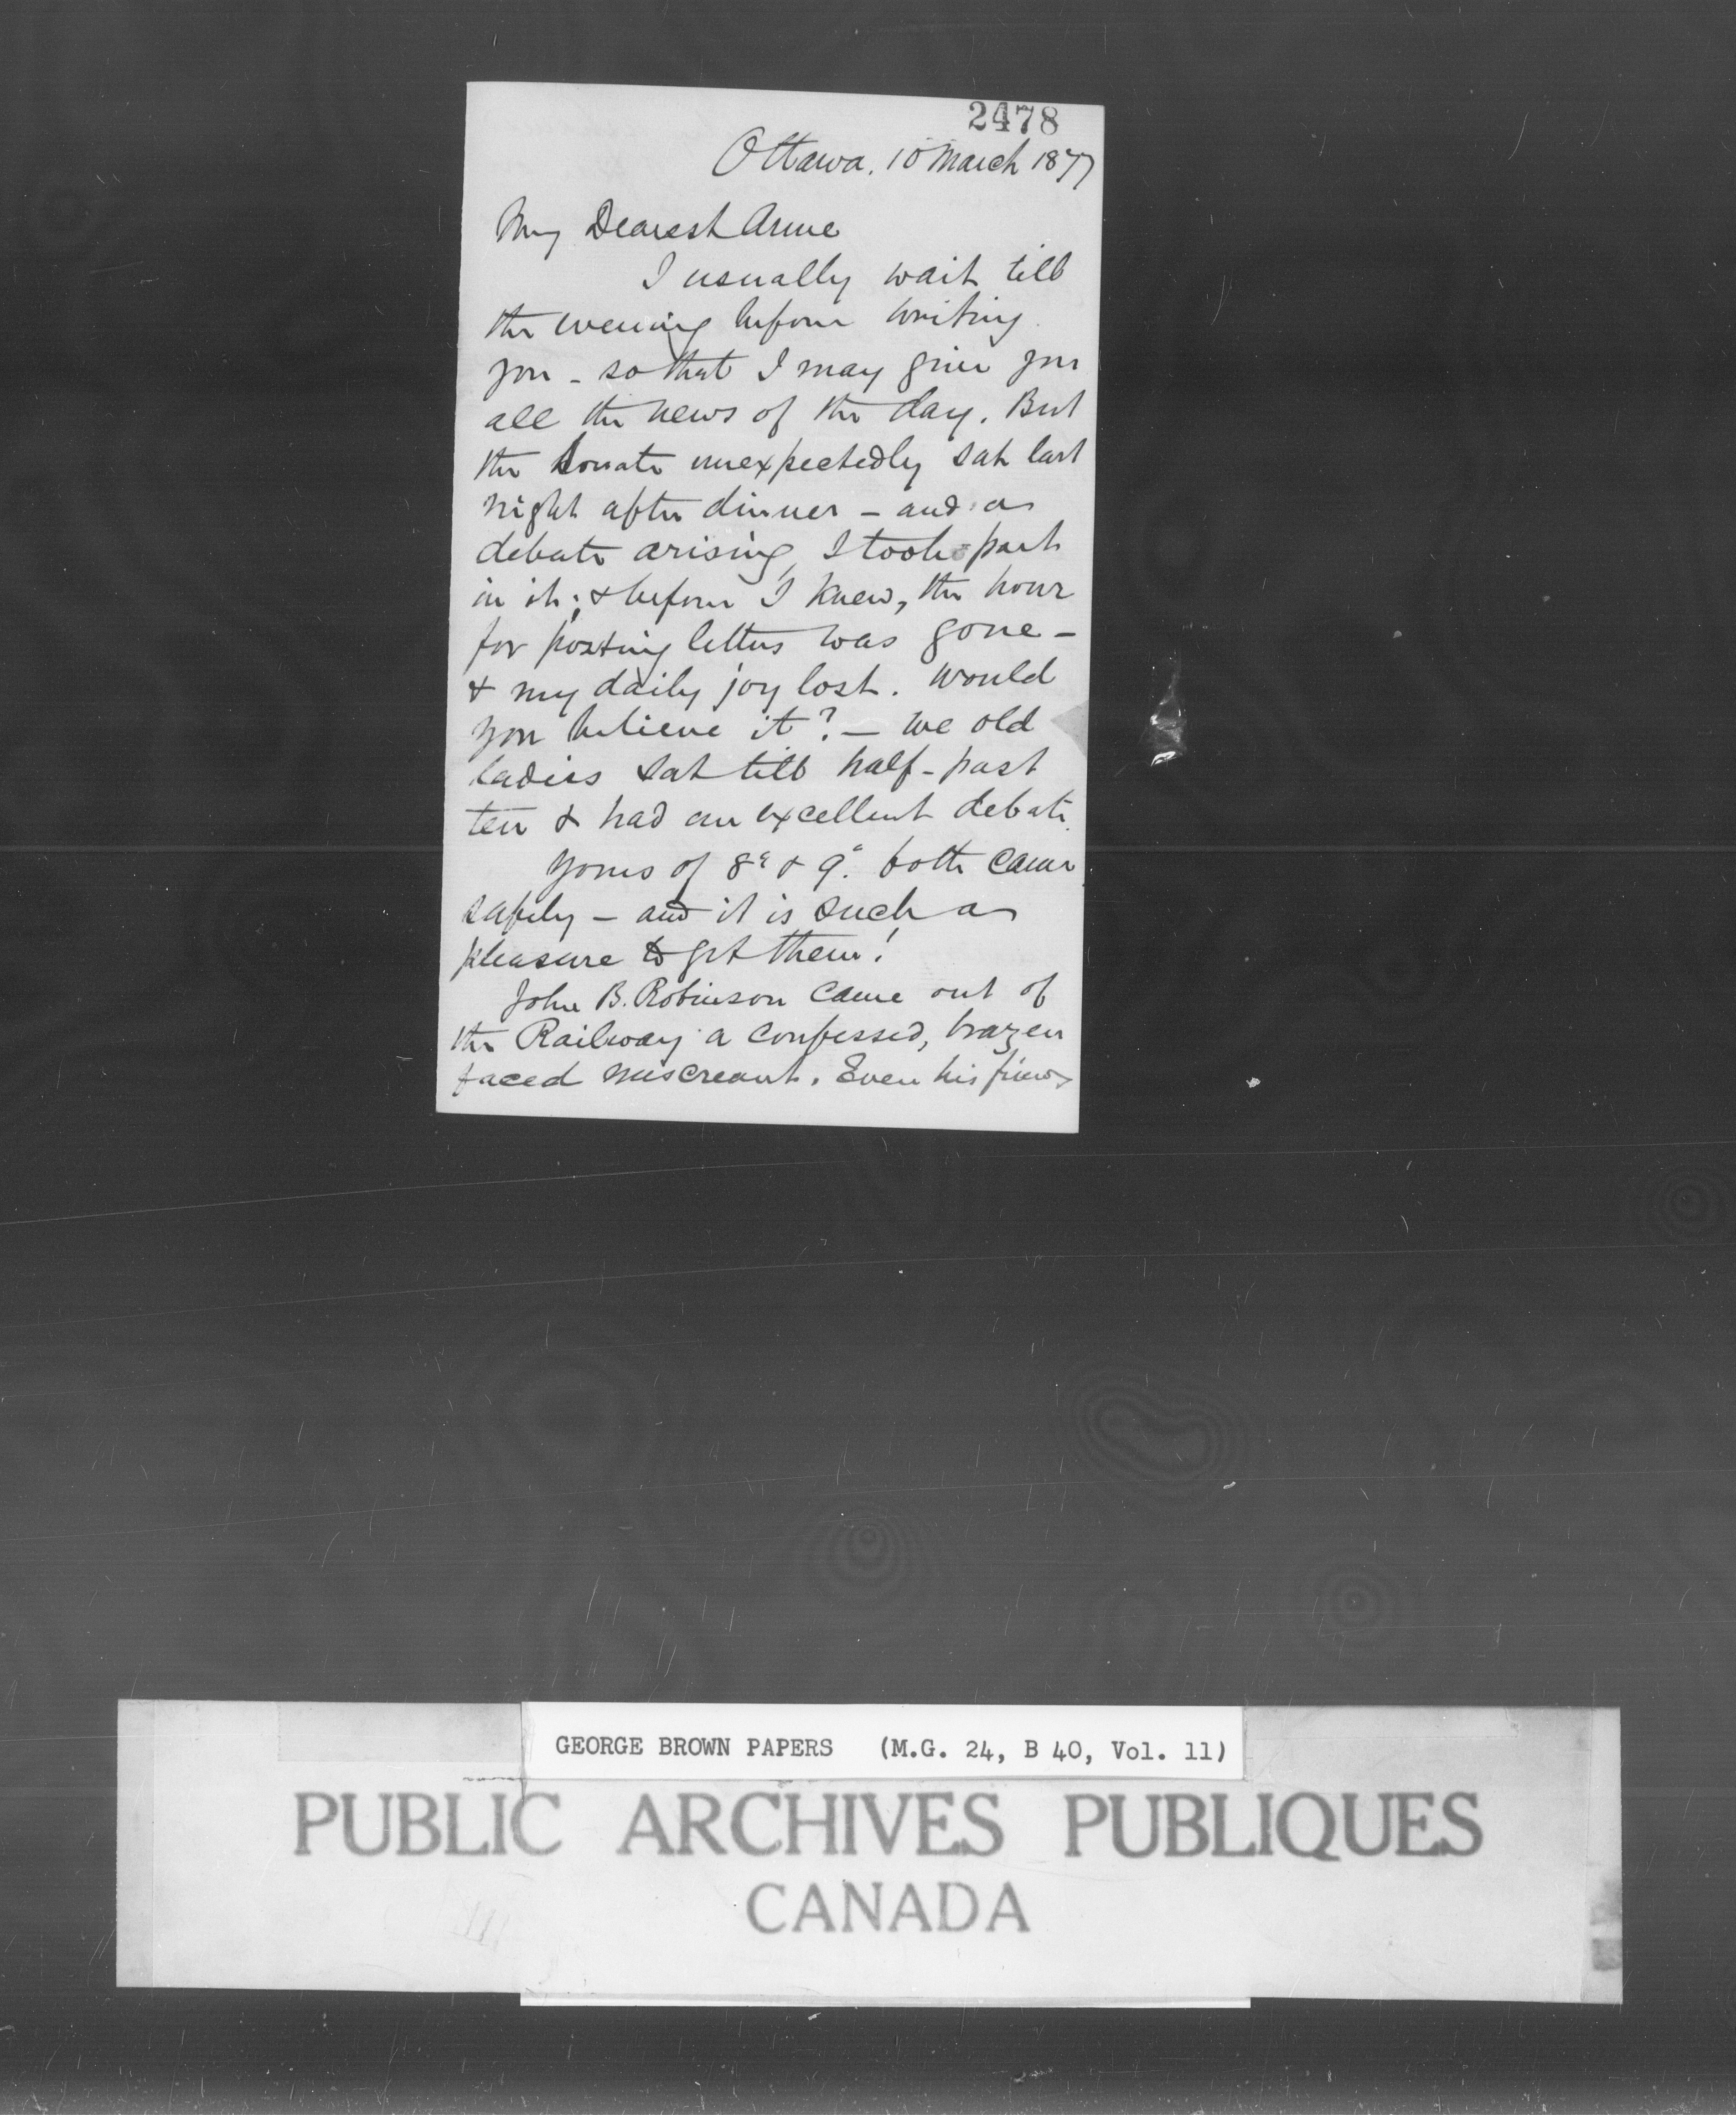 2478
Ottawa. 10 March 1877
My Dearest Anne
I usually wait till
the evening before writing
you - so that I may give you
all the news of the day. But
the Senate unexpectedly sat last
night after dinner - and a
debate arising, I took part
in it; & before I knew, the hour
for posting letters was gone -
& my daily joy lost. Would
you believe it? - we old
ladies sat till half-past
ten & had an excellent debate.
Yours of 8th & 9th both came
safely - and it is such a
pleasure to get them!
John B. Robinson came out of
the Railway a confessed, brazen
faced miscreant. Even his friends
GEORGE BROWN PAPERS (M.G. 24, B 40, Vol. 11)
PUBLIC ARCHIVES PUBLIQUES
CANADA